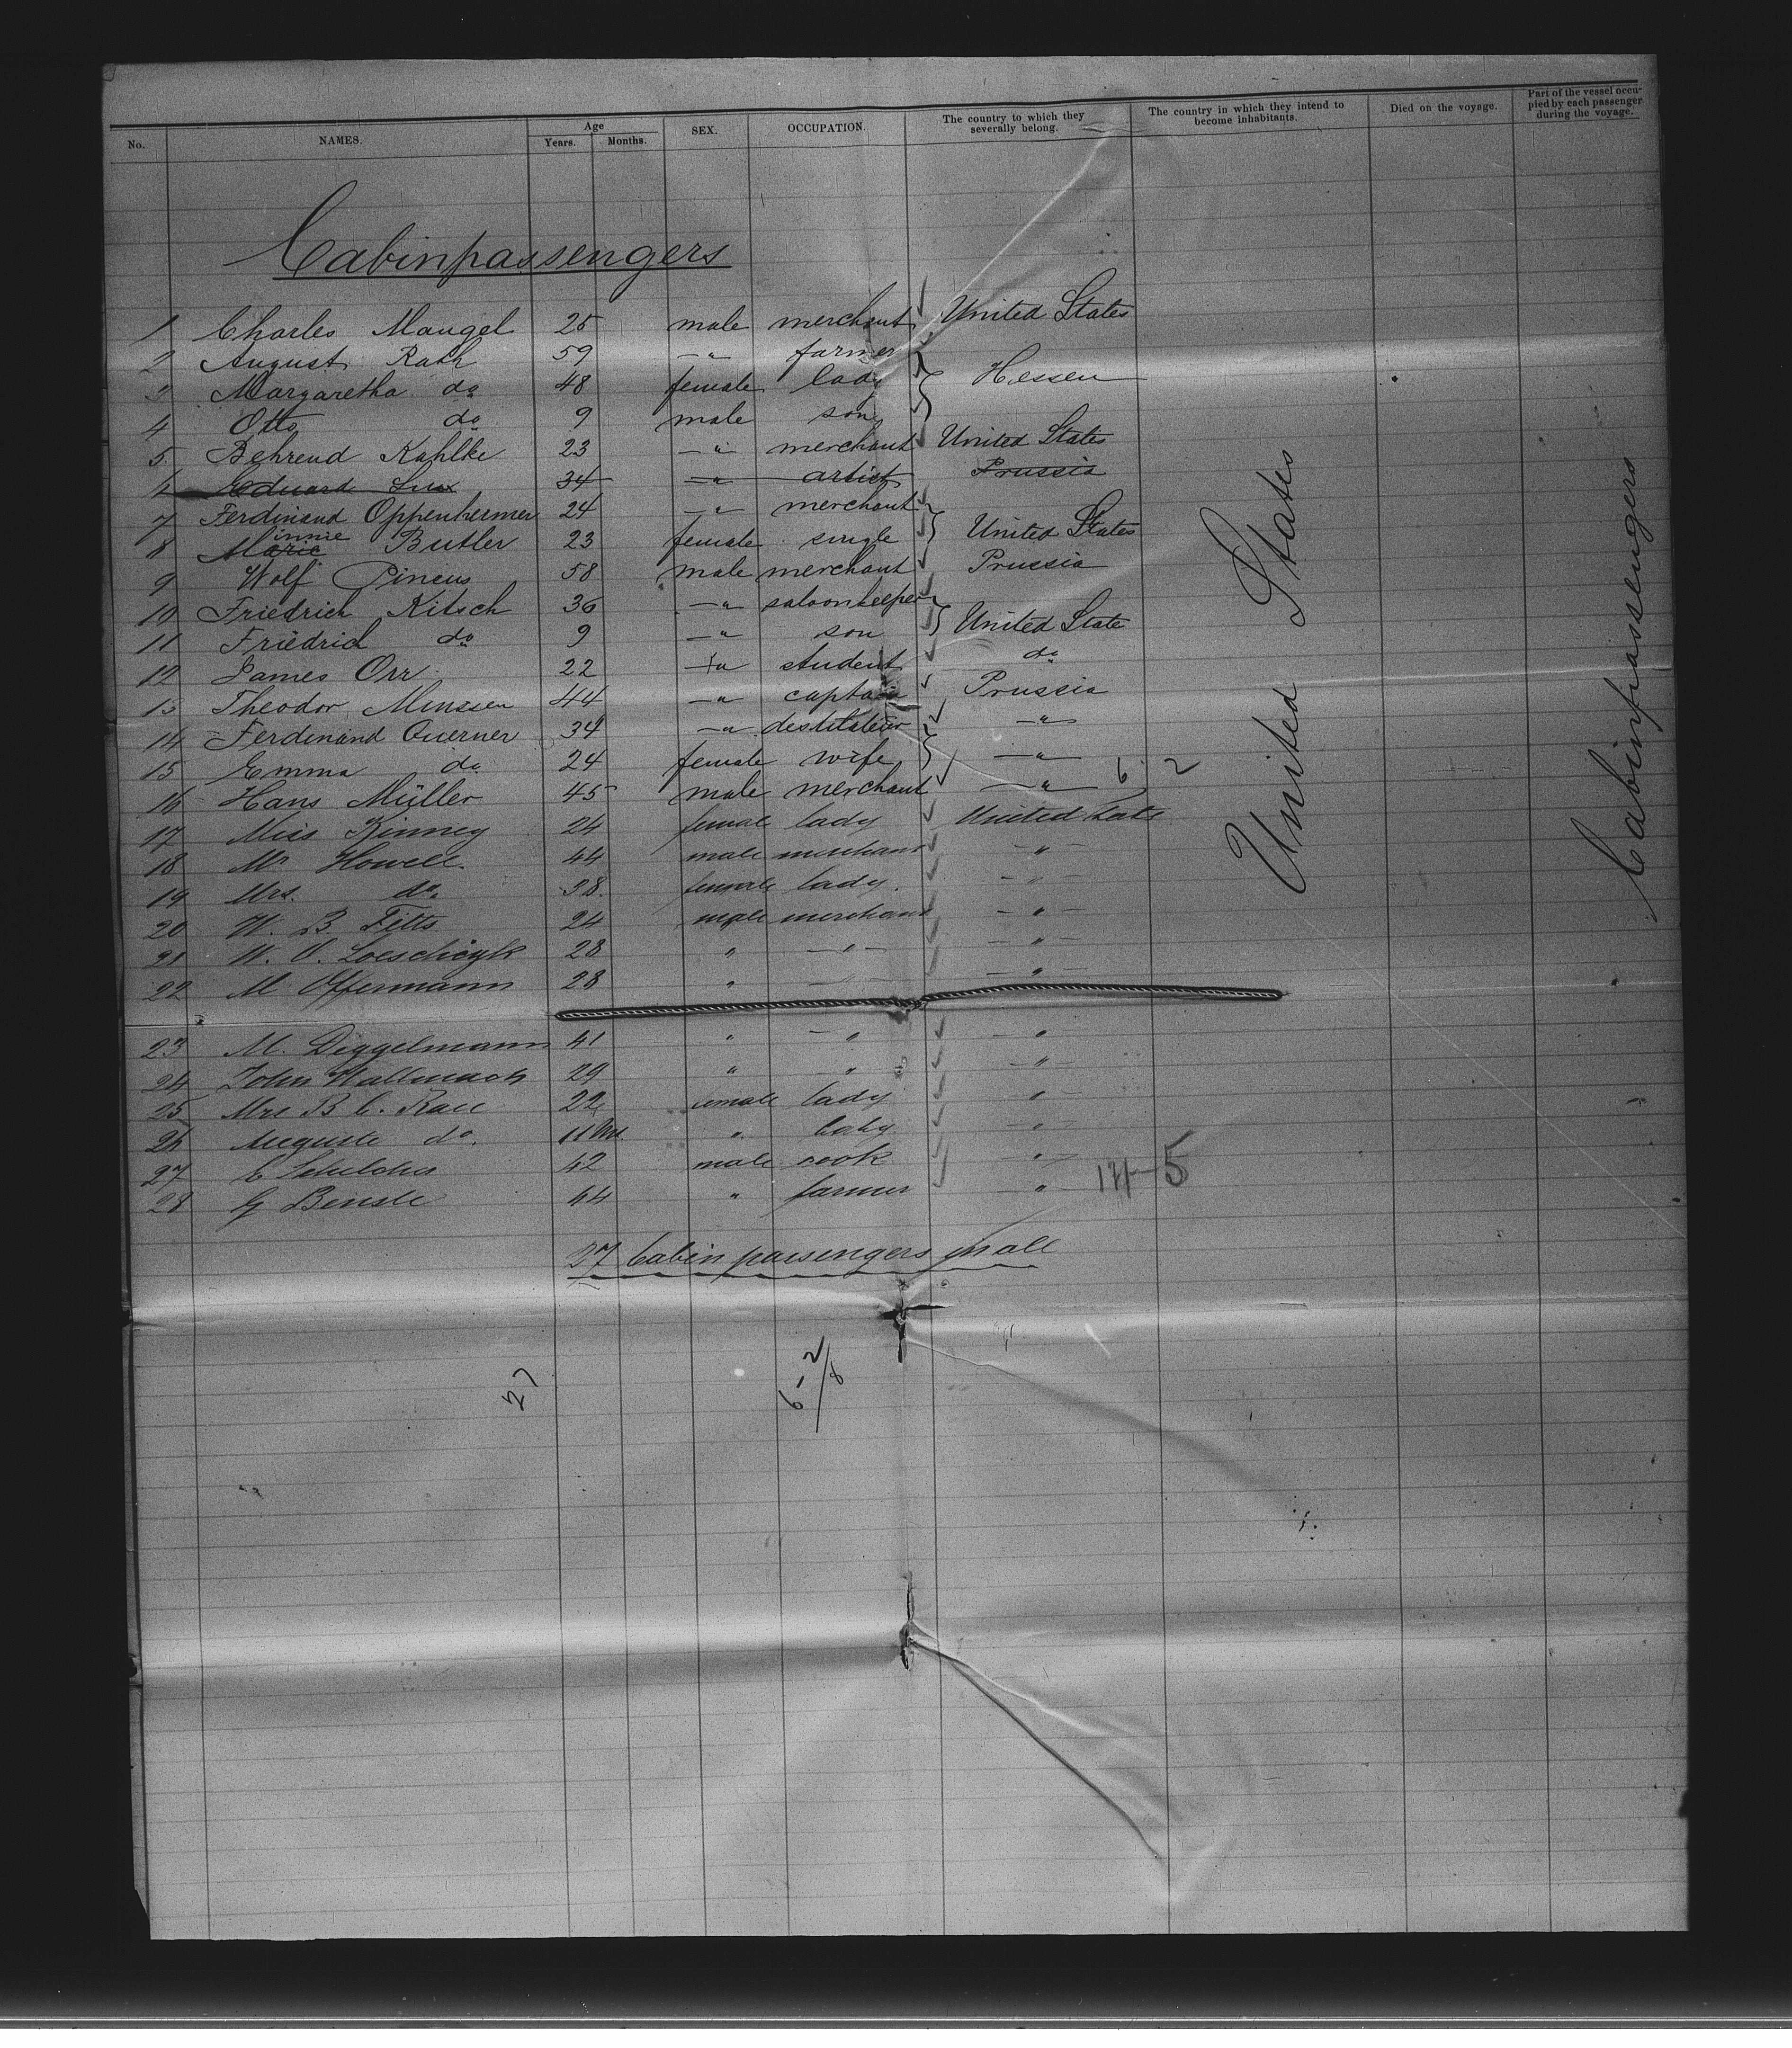 No. NAMES. Age Years. Months. SEX. OCCUPATION. The country to which they severally belong. The country in which they intend to become inhabitants. Died on the voyage. Part of the vessel occupied by each passenger during the voyage.
Cabinpassengers
1 Charles Mangel 25 male merchant United States
2 August Rath 59 —"— farmer
3 Margaretha do 48 female lady Hessen
4 Otto do 9 male son
5 Behrend Kahlke 23 —"— merchant United States
6 Eduard Lux 34 —"— artist Prussia
7 Ferdinand Oppenheimer 24 —"— merchant
8 Minnie Butler 23 female single United States
9 Wolf Pincus 58 male merchant Prussia
10 Friedrich Kitsch 36 —"— saloonkeeper
11 Friedrich do 9 —"— son United State
12 James Orr 22 —"— student do
13 Theodor Minssen 44 —"— captain Prussia
14 Ferdinand Querner 34 —"— destilateur —"—
15 Emma do 24 female wife —"—
16 Hans Müller 45 male merchant —"— 6 2
17 Miss Kinney 24 female lady United State
18 Mr Howell 44 male merchant —"—
19 Mrs. do. 28 female lady —"—
20 W. B. Fitts 24 male merchant —"—
21 W. O. 28 " —"— —"—
22 M Offermann 28 " —"—
23 M. Diggelmann 41 " —"— —"—
24 John 29 " " —"—
25 Mrs B C. 22 female lady "
26 Auguste do. 11 " baby "
27 C 42 male cook "
28 G 44 " farmer "
171-5
27 Cabin passengers in all
27
6-2/8
United States
Cabinpassengers